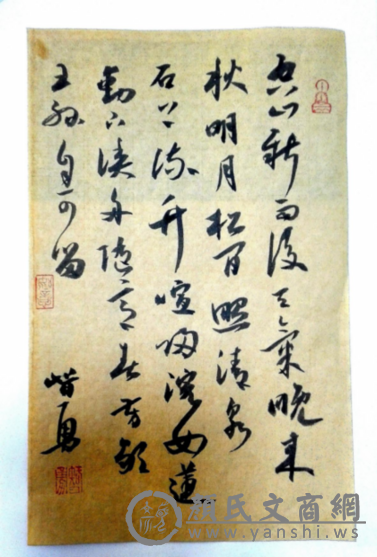 空山新雨後天氣晚來
秋明月松間照清泉
石上流竹喧歸浣女蓮
動下漁舟隨意春芳歇
王孫自可留
勇
顏氏文商網
www.yanshi.ws